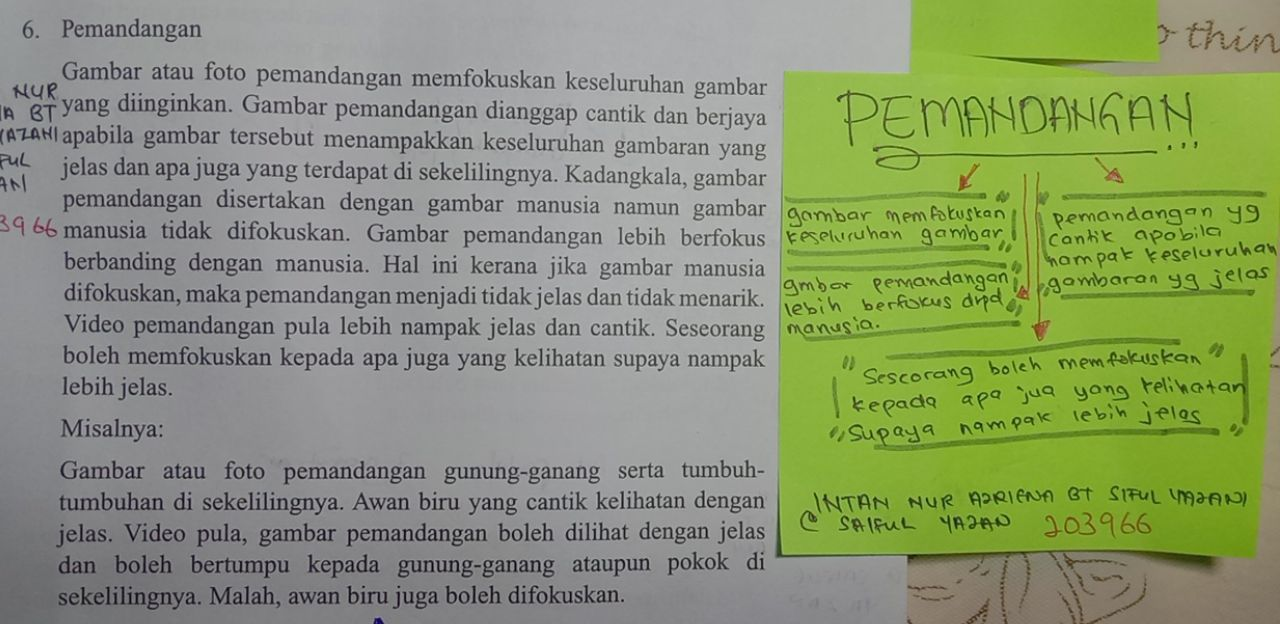 6. Pemandangan
Gambar atau foto pemandangan memfokuskan keseluruhan gambar
yang diinginkan. Gambar pemandangan dianggap cantik dan berjaya
apabila gambar tersebut menampakkan keseluruhan gambaran yang
jelas dan apa juga yang terdapat di sekelilingnya. Kadangkala, gambar
pemandangan disertakan dengan gambar manusia namun gambar
manusia tidak difokuskan. Gambar pemandangan lebih berfokus
berbanding dengan manusia. Hal ini kerana jika gambar manusia
difokuskan, maka pemandangan menjadi tidak jelas dan tidak menarik.
Video pemandangan pula lebih nampak jelas dan cantik. Seseorang
boleh memfokuskan kepada apa juga yang kelihatan supaya nampak
lebih jelas.
Misalnya:
Gambar atau foto pemandangan gunung-ganang serta tumbuh-
tumbuhan di sekelilingnya. Awan biru yang cantik kelihatan dengan
jelas. Video pula, gambar pemandangan boleh dilihat dengan jelas
dan boleh bertumpu kepada gunung-ganang ataupun pokok di
sekelilingnya. Malah, awan biru juga boleh difokuskan.
NUR
A BT
YAZANI
FUL
AN
3966
thin
PEMANDANGAN...
gambar memfokuskan
keseluruhan gambar
gmbar pemandangan
lebih berfokus drpd
manusia.
pemandangan yg
cantik apabila
nampak keseluruhan
gambaran yg jelas
"Seseorang boleh memfokuskan"
kepada apa jua yang kelihatan
"supaya nampak lebih jelas"
INTAN NUR AZRIENA BT SIFUL YAZANI
@ SAIFUL YAZAN 203966